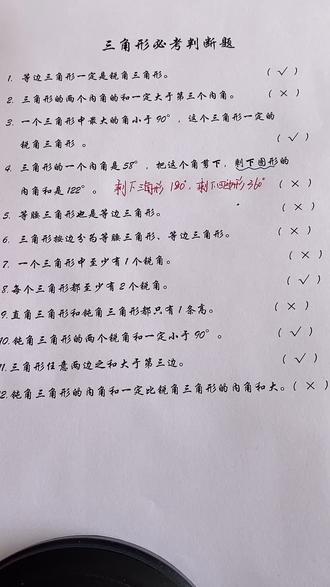 三角形必考判断题
1. 等边三角形一定是锐角三角形。 (✓)
2. 三角形的两个内角的和一定大于第三个内角。 (×)
3. 一个三角形中最大的角小于90°，这个三角形一定的
锐角三角形。 (✓)
4. 三角形的一个内角是58°，把这个角剪下，剩下图形的
内角和是122°。 剩下三角形180°，剩下四边形360° (×)
5. 等腰三角形也是等边三角形。 (×)
6. 三角形按边分为等腰三角形、等边三角形。 (×)
7. 一个三角形中至少有1个锐角。 (×)
8.每个三角形都至少有2个锐角。 (✓)
9.直角三角形和钝角三角形都只有1条高。 (×)
10.钝角三角形的两个锐角和一定小于90°。 (✓)
11.三角形任意两边之和大于第三边。 (✓)
2.钝角三角形的内角和一定比锐角三角形的内角和大。(×)